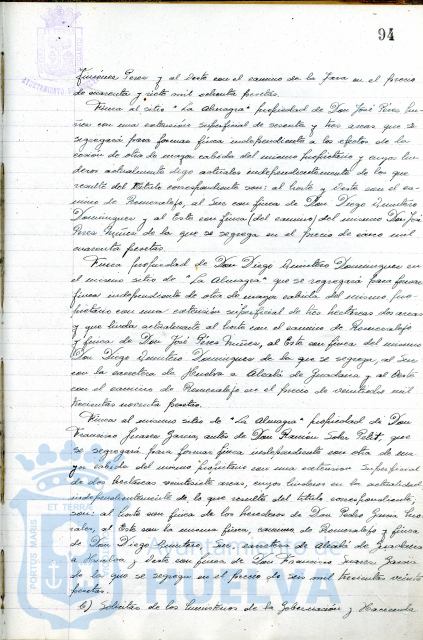 94
Jiménez Perez y al Oeste con el camino de la Jara en el precio
de cuarenta y siete mil ochenta pesetas.
Finca al sitio "La Almagra" propiedad de Don José Pérez Mu-
ñez con una extensión superficial de sesenta y tres areas que se
segregará para formar finca independiente a los efectos de la
cesión de otra de mayor cabida del mismo propietario y cuyos lin-
deros actualmente digo actuales independientemente de los que
resulte del título correspondiente son: al Norte y Oeste con el ca-
mino de Romeralejo, al Sur con finca de Don Diego Quintero
Dominguez y al Este con finca (del camino) del mismo Don José
Perez Muñez de la que se segrega en el precio de cinco mil
cuarenta pesetas.
Finca propiedad de Don Diego Quintero Dominguez en
el mismo sitio de "La Almagra" que se segregará para formar
finca independiente de otra de mayor cabida del mismo pro-
pietario con una extensión superficial de tres hectareas dos areas
y que linda actualmente al Norte con el camino de Romeralejo
y finca de Don José Pérez Muñez, al Este con finca del mismo
Don Diego Quintero Dominguez de la que se segrega, al Sur
con la carretera de Huelva a Alcalá de Guadaira y al Oeste
con el camino de Romeralejo en el precio de veintidos mil
trescientas noventa pesetas.
Finca al mismo sitio de "La Almagra" propiedad de Don
Francisco Juarez Garcia, antes de Don Ramón Soler Pelit, que
se segregará para formar finca independiente con otra de ma-
yor cabida del mismo propietario con una extensión superficial
de dos hectareas veintisiete areas, cuyos linderos en la actualidad,
independientemente de lo que resulte del título correspondiente,
son: al Norte con finca de los herederos de Don Pedro Garcia
rales, al Este con la misma finca, camino de Romeralejo y finca
de Don Diego Quintero, Sur carretera de Alcalá de Guadaira
a Huelva y Oeste con finca de Don Francisco Juarez Garcia
de la que se segrega en el precio de seis mil trescientas veinte
pesetas.
6) Solicitar de los Ministerios de la Gobernación y Hacienda
AYUNTAMIENTO
PORTUS MARIS ET TE
Ayuntamiento de
HUELVA